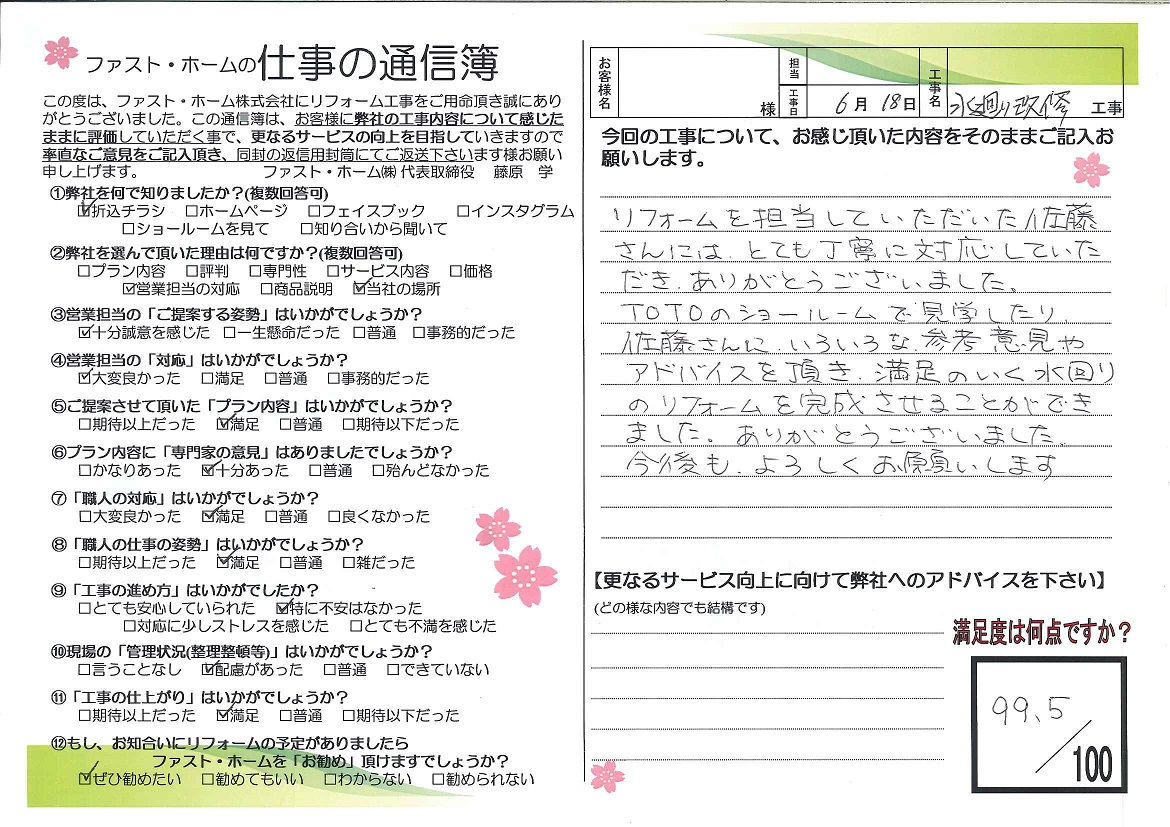 ファスト・ホームの仕事の通信簿
この度は、ファスト・ホーム株式会社にリフォーム工事をご用命頂き誠にあり
がとうございました。この通信簿は、お客様に弊社の工事内容について感じた
ままに評価していただく事で、更なるサービスの向上を目指していきますので
率直なご意見をご記入頂き、同封の返信用封筒にてご返送下さいます様お願い
申し上げます。 ファスト・ホーム㈱ 代表取締役 藤原 学
①弊社を何で知りましたか？(複数回答可)
☑折込チラシ □ホームページ □フェイスブック □インスタグラム
□ショールームを見て □知り合いから聞いて
②弊社を選んで頂いた理由は何ですか？(複数回答可)
□プラン内容 □評判 □専門性 □サービス内容 □価格
☑営業担当の対応 □商品説明 ☑当社の場所
③営業担当の「ご提案する姿勢」はいかがでしょうか？
☑十分誠意を感じた □一生懸命だった □普通 □事務的だった
④営業担当の「対応」はいかがでしょうか？
☑大変良かった □満足 □普通 □事務的だった
⑤ご提案させて頂いた「プラン内容」はいかがでしょうか？
□期待以上だった ☑満足 □普通 □期待以下だった
⑥プラン内容に「専門家の意見」はありましたでしょうか？
□かなりあった ☑十分あった □普通 □殆んどなかった
⑦「職人の対応」はいかがでしょうか？
□大変良かった ☑満足 □普通 □良くなかった
⑧「職人の仕事の姿勢」はいかがでしょうか？
□期待以上だった ☑満足 □普通 □雑だった
⑨「工事の進め方」はいかがでしたか？
□とても安心していられた ☑特に不安はなかった
□対応に少しストレスを感じた □とても不満を感じた
⑩現場の「管理状況(整理整頓等)」はいかがでしょうか？
□言うことなし ☑配慮があった □普通 □できていない
⑪「工事の仕上がり」はいかがでしょうか？
□期待以上だった ☑満足 □普通 □期待以下だった
⑫もし、お知合いにリフォームの予定がありましたら
ファスト・ホームを「お勧め」頂けますでしょうか？
☑ぜひ勧めたい □勧めてもいい □わからない □勧められない
お客様名 様 担当 工事日 6月 18日 工事名 水廻り改修 工事
今回の工事について、お感じ頂いた内容をそのままご記入お
願いします。
リフォームを担当していただいた佐藤
さんには、とても丁寧に対応していた
だき、ありがとうございました。
TOTOのショールームで見学したり、
佐藤さんに、いろいろな参考意見や
アドバイスを頂き、満足のいく水回り
のリフォームを完成させることができ
ました。ありがとうございました。
今後も、よろしくお願いします
【更なるサービス向上に向けて弊社へのアドバイスを下さい】
(どの様な内容でも結構です)
満足度は何点ですか？
99.5
/100